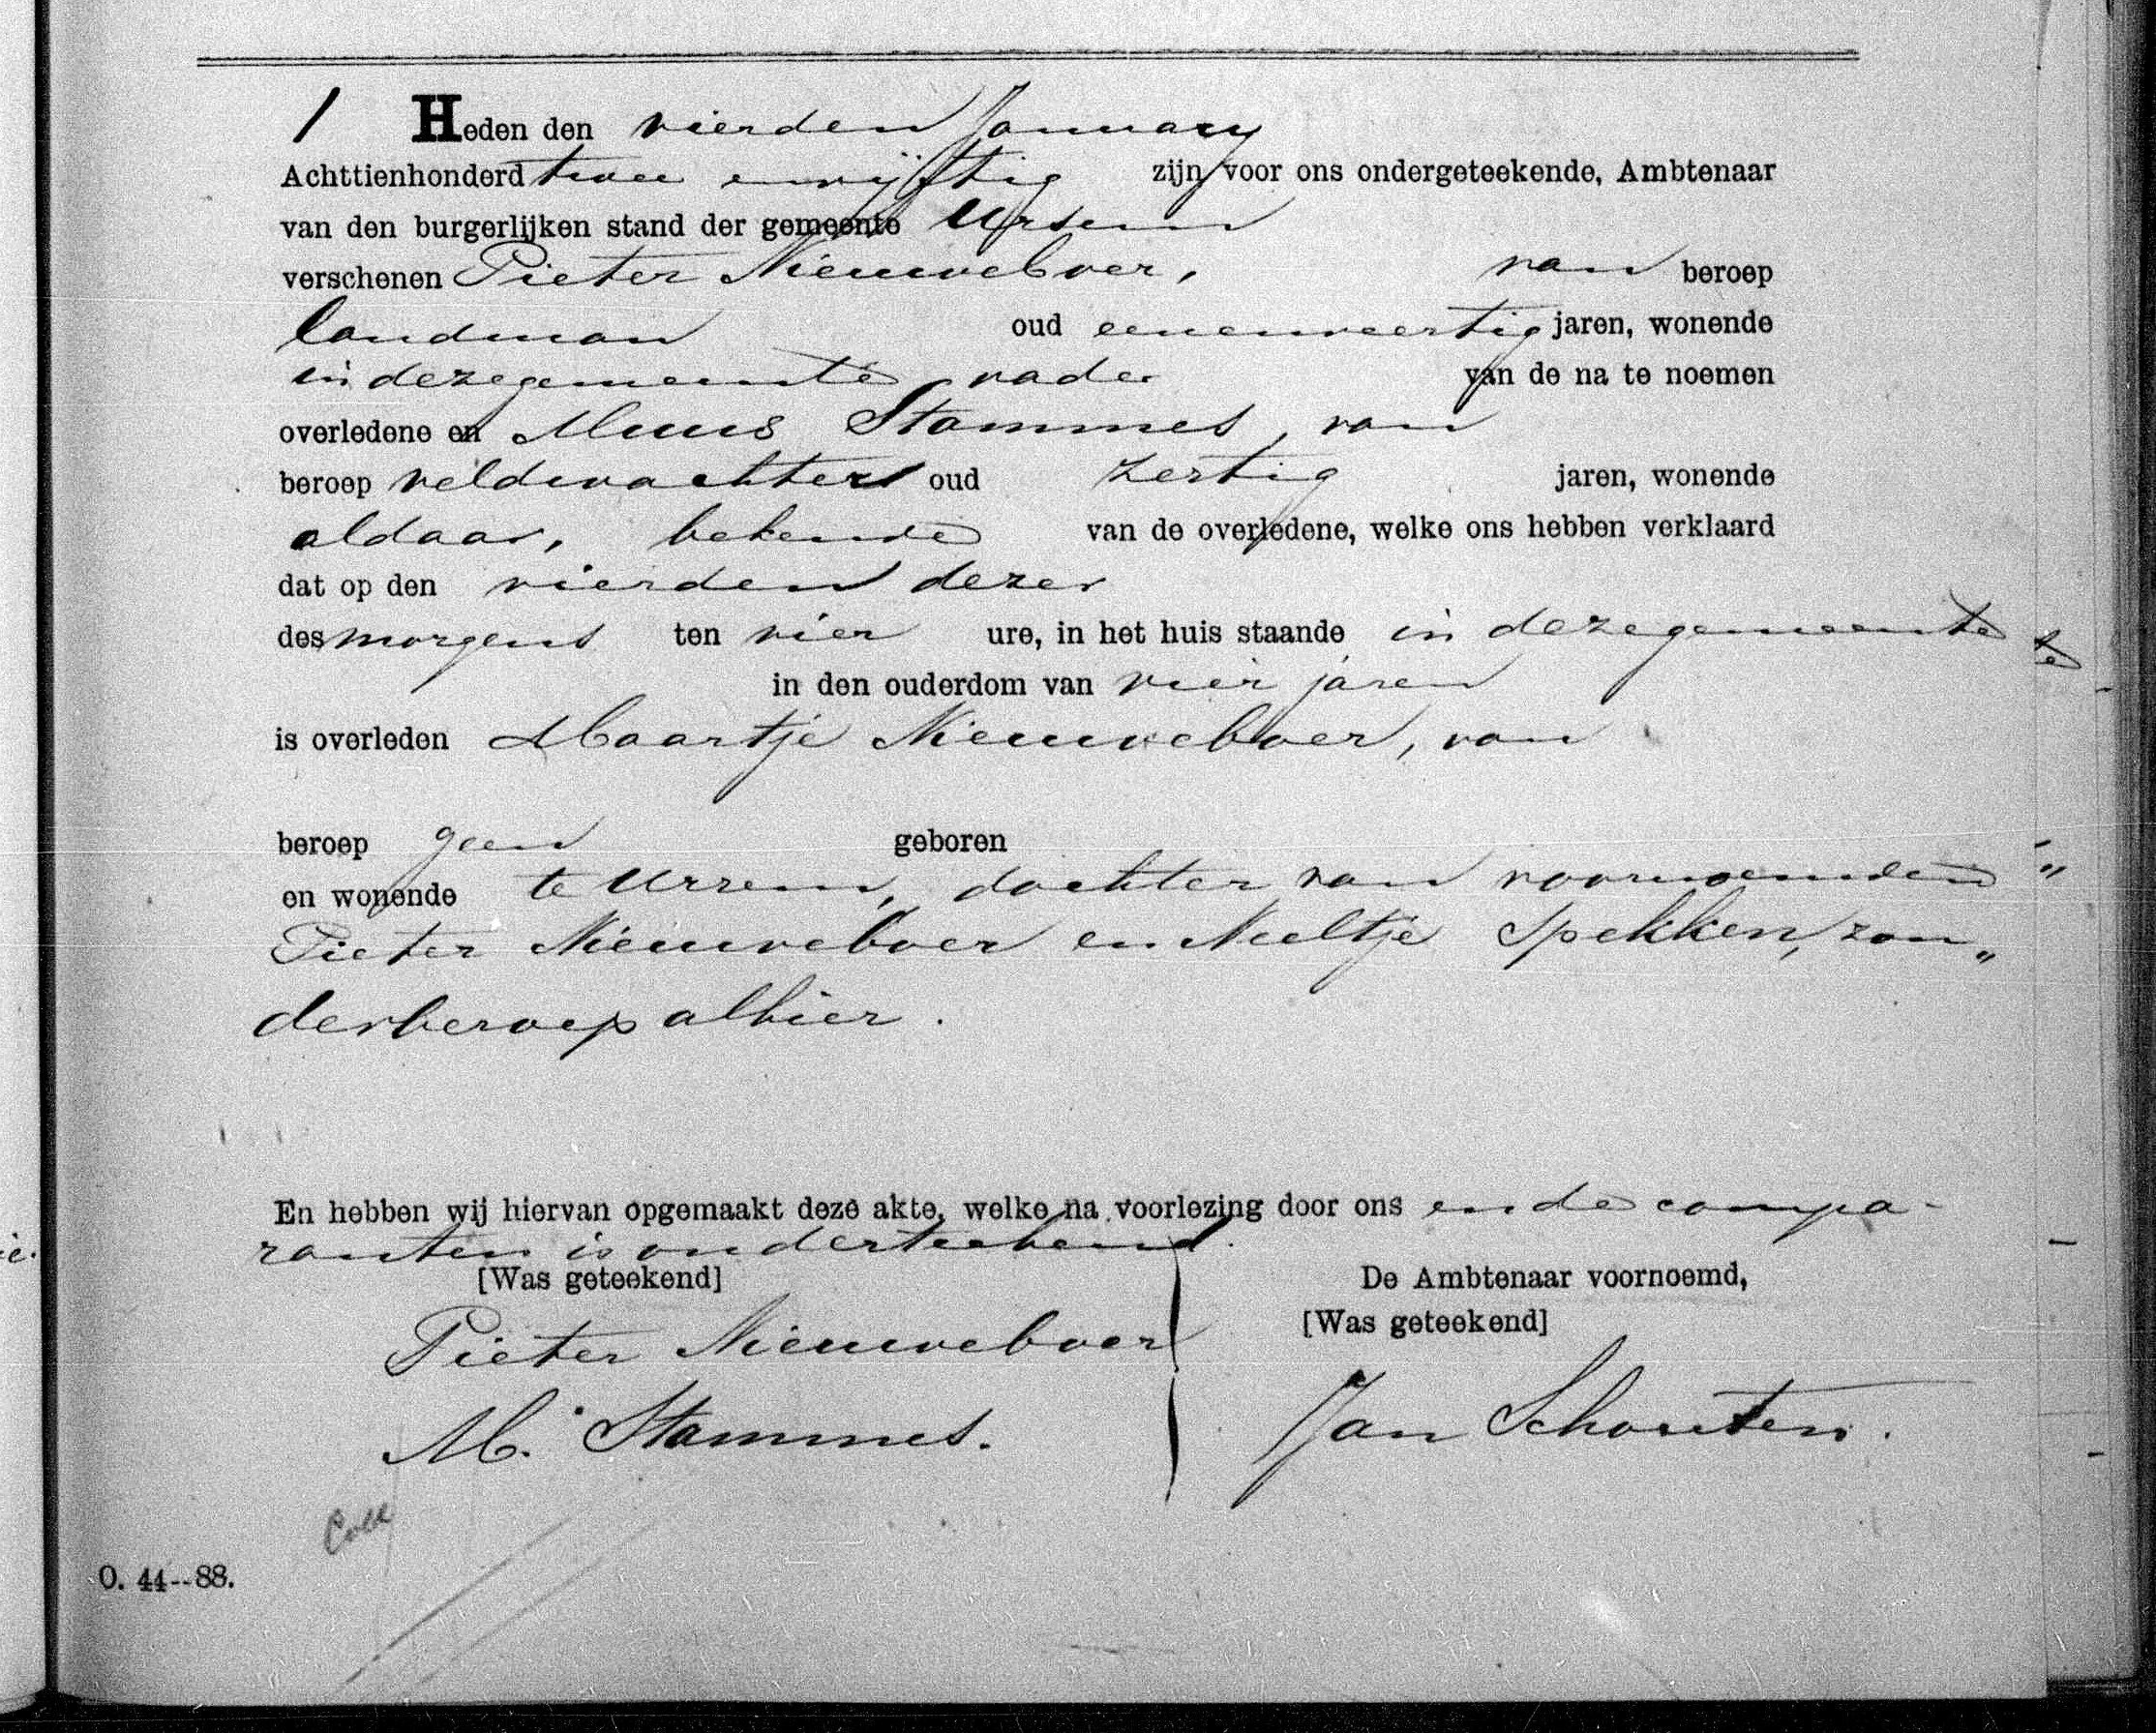 1 Heden den vierden January
Achttienhonderd twee envijftig zijn voor ons ondergeteekende, Ambtenaar
van den burgerlijken stand der gemeente Ursem
verschenen Pieter Nieuweboer, van beroep
landman oud eenenveertig jaren, wonende
in dezegemeente vader van de na te noemen
overledene en Muus Stammes, van
beroep veldwachter oud zestig jaren, wonende
aldaar, bekende van de overledene, welke ons hebben verklaard
dat op den vierden dezer
des morgens ten vier ure, in het huis staande in dezegemeente
in den ouderdom van vier jaren
is overleden Maartje Nieuweboer, van
beroep geen geboren
en wonende te Ursem, dochter van voornoemden
Pieter Nieuweboer en Neeltje Spekken, zon„
derberoep alhier.
En hebben wij hiervan opgemaakt deze akte, welke na voorlezing door ons en de compa-
ranten is onderteekend.
[Was geteekend] De Ambtenaar voornoemd,
Pieter Nieuweboer [Was geteekend]
M. Stammes. Jan Schouten.
O. 44--88.